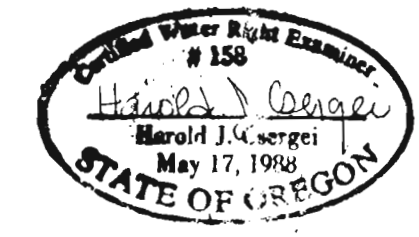 Certified Water Right Examiner
# 158
Harold J Csergei
Harold J. Csergei
May 17, 1988
STATE OF OREGON